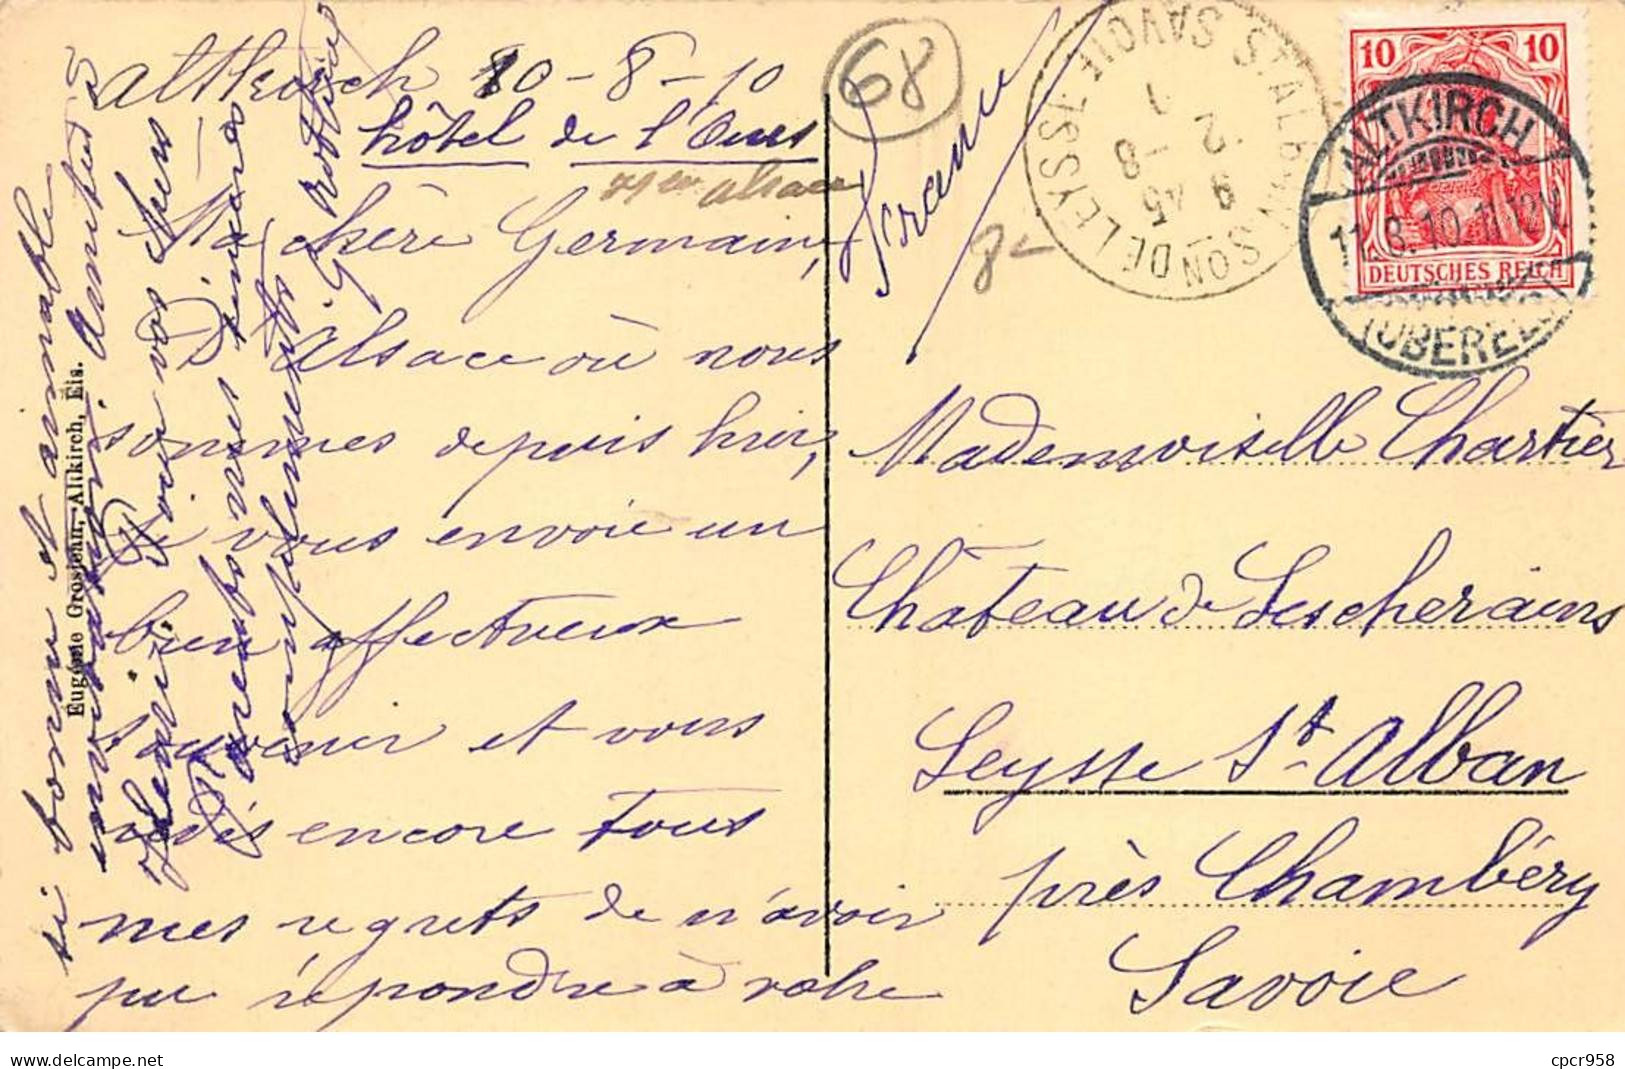 Altkirch 10-8-10
hôtel de l'Ours
alsace
Ma chère Germaine,
D'Alsace où nous
sommes depuis hier,
je vous envoie un
bien affectueux
souvenir et vous
redis encore tous
mes regrets de n'avoir
pu répondre à votre
si bonne et aimable
invitation. Amitiés
à vos
Parents mes sincères
compliments
France
68
8-
Eugénie Grosjean, Altkirch, Els.
ST ALBAN SON DE LEYSSE
SAVOIE
1
2 -8
9 45
10 10
DEUTSCHES REICH
ALTKIRCH
11.8.10.11-12V.
(OBERELS.)
Mademoiselle Chartier
Château de Lescheraines
Leysse St Alban
près Chambéry
Savoie
delcampe.net
cpcr958